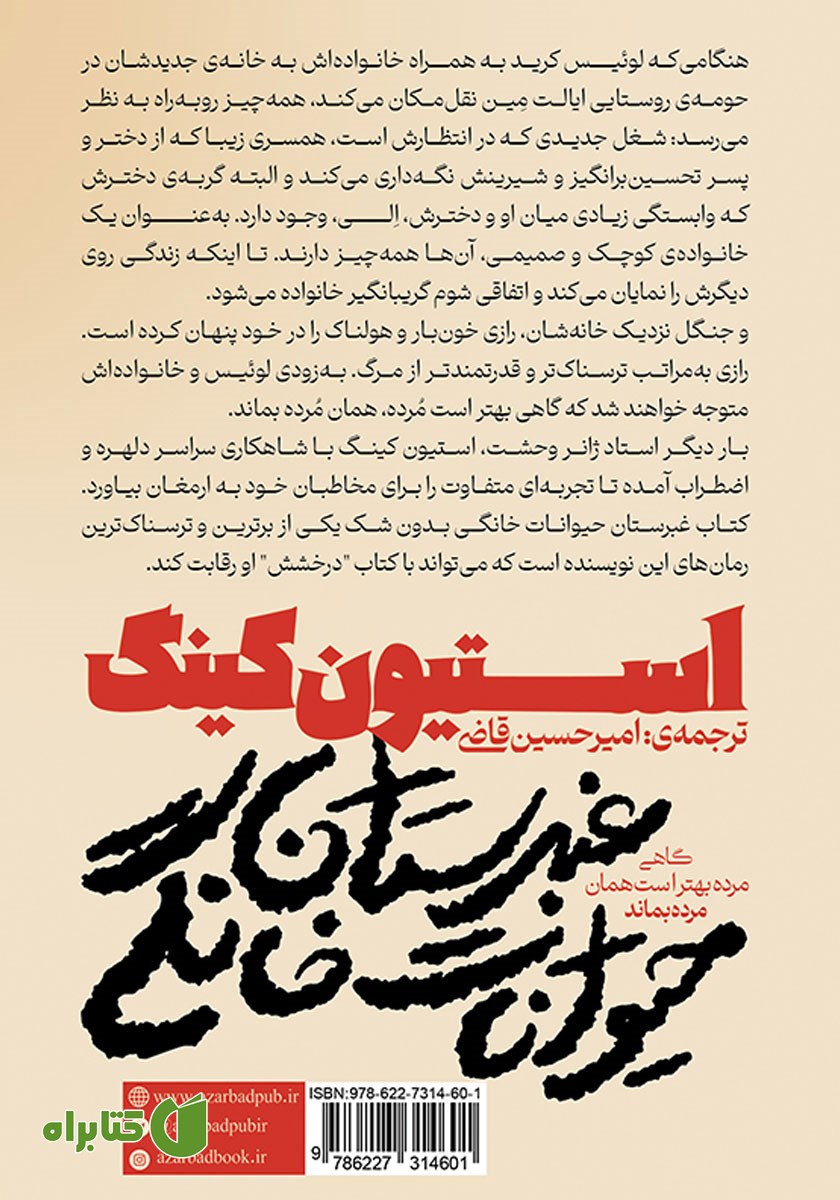 هنگامی‌که لوئیس کرید به همراه خانواده‌اش به خانه‌ی جدیدشان در
حومه‌ی روستایی ایالت مِین نقل‌مکان می‌کند، همه‌چیز روبه‌راه به نظر
می‌رسد: شغل جدیدی که در انتظارش است، همسری زیبا که از دختر و
پسر تحسین‌برانگیز و شیرینش نگه‌داری می‌کند و البته گربه‌ی دخترش
که وابستگی زیادی میان او و دخترش، اِلی، وجود دارد. به‌عنوان یک
خانواده‌ی کوچک و صمیمی، آن‌ها همه‌چیز دارند. تا اینکه زندگی روی
دیگرش را نمایان می‌کند و اتفاقی شوم گریبانگیر خانواده می‌شود.
و جنگل نزدیک خانه‌شان، رازی خون‌بار و هولناک را در خود پنهان کرده است.
رازی به‌مراتب ترسناک‌تر و قدرتمندتر از مرگ. به‌زودی لوئیس و خانواده‌اش
متوجه خواهند شد که گاهی بهتر است مُرده، همان مُرده بماند.
بار دیگر استاد ژانر وحشت، استیون کینگ با شاهکاری سراسر دلهره و
اضطراب آمده تا تجربه‌ای متفاوت را برای مخاطبان خود به ارمغان بیاورد.
کتاب غبرستان حیوانات خانگی بدون شک یکی از برترین و ترسناک‌ترین
رمان‌های این نویسنده است که می‌تواند با کتاب "درخشش" او رقابت کند.
استیون کینگ
ترجمه‌ی: امیرحسین قاضی
غبرستان
گاهی
مرده بهتر است همان
مرده بماند
حیوانات خانگی
www.azarbadpub.ir
azarbadpubir
azarbadbook.ir
کتابراه
ISBN:978-622-7314-60-1
9 786227 314601